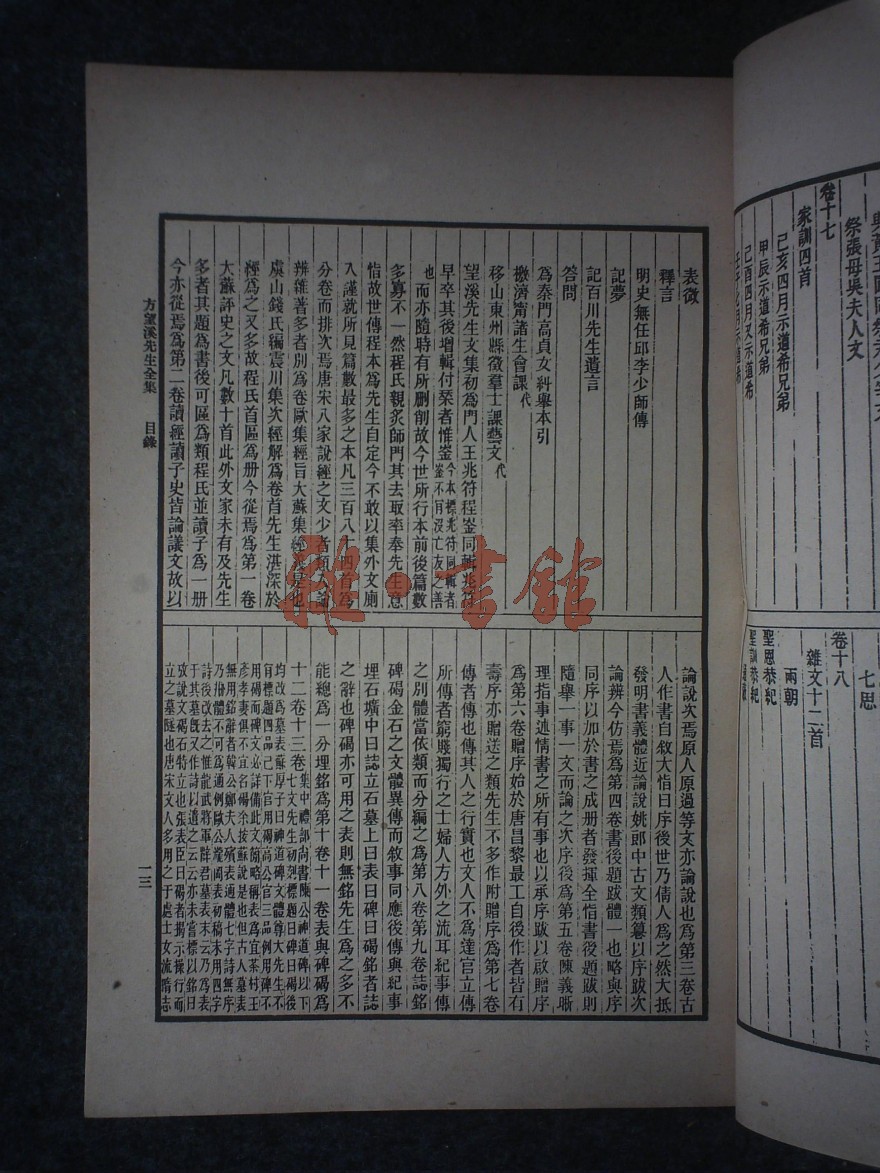 卷十七
家訓四首
己亥四月示道希兄弟
甲辰示道希兄弟
己酉四月又示道希
七思
卷十八
雜文十二首
兩朝
聖恩恭紀
聖訓恭紀
祭張母吳夫人文
表微
釋言
明史無任邱李少師傳
記夢
記百川先生遺言
答問
爲秦門高貞女糾舉本引
檄濟甯諸生會課代
移山東州縣徵羣士課藝文代
望溪先生文集初爲門人王兆符程崟同輯兆符
早卒其後增輯付槧者惟崟今本標兆符同輯者崟不肯沒亡友之善
也而亦隨時有所刪削故今世所行本前後篇數
多寡不一然程氏親炙師門其去取率奉先生意
恉故世傳程本爲先生自定今不敢以集外文廁
入謹就所見篇數最多之本凡三百八十四首爲
分卷而排次焉唐宋八家說經之文少者類入論
辨雜著多者別爲卷歐集經旨大蘇集經義是也
虞山錢氏編震川集次經解爲卷首先生湛深於
經爲之又多故程氏首區爲册今從焉爲第一卷
大蘇評史之文凡數十首此外文家未有及先生
多者其題爲書後可區爲類程氏並讀子爲一册
今亦從焉爲第二卷讀經讀子史皆論議文故以
論說次焉原人原過等文亦論說也爲第三卷古
人作書自敘大恉曰序後世乃倩人爲之然大抵
發明書義體近論說姚郎中古文類纂以序跋次
論辨今仿焉爲第四卷書後題跋體一也略與序
同序以加於書之成册者發揮全恉書後題跋則
隨舉一事一文而論之次序後爲第五卷陳義晰
理指事述情書之所有事也以承序跋以啟贈序
爲第六卷贈序始於唐昌黎最工自後作者皆有
壽序亦贈送之類先生不多作附贈序爲第七卷
傳者傳也傳其人之行實也文人不爲達官立傳
所傳者窮賤獨行之士婦人方外之流耳紀事傳
之別體當依類而分編之爲第八卷第九卷誌銘
碑碣金石之文體異傳而敘事同應後傳與紀事
埋石壙中曰誌立石墓上曰表曰碑曰碣銘者誌
之辭也碑碣亦可用之表則無銘先生爲之多不
能總爲一分埋銘爲第十卷十一卷表與碑碣爲
十二卷十三卷
方望溪先生全集 目錄
一三
雜·書館